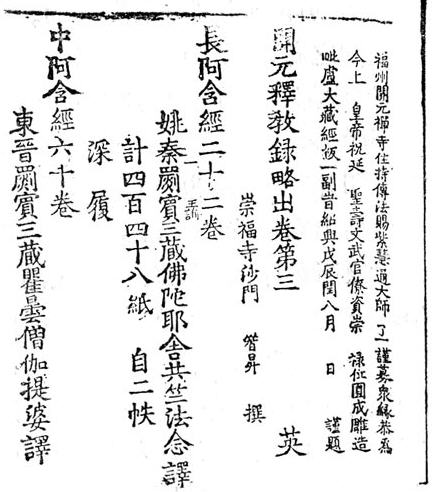 福州開元禪寺住持傳法賜紫慧通大師了一謹募衆緣恭爲
今上皇帝祝延聖壽文武官僚資崇祿位圓成雕造
毗盧大藏經板一副旹紹興戊辰閏八月日謹題
開元釋教錄略出卷第三 英
崇福寺沙門智昇撰
長阿含經二十二卷
姚秦罽賓三藏佛陀耶舍共竺法念譯
計四百四十八紙 自二帙
深履
中阿含經六十卷
東晉罽賓三藏瞿曇僧伽提婆譯